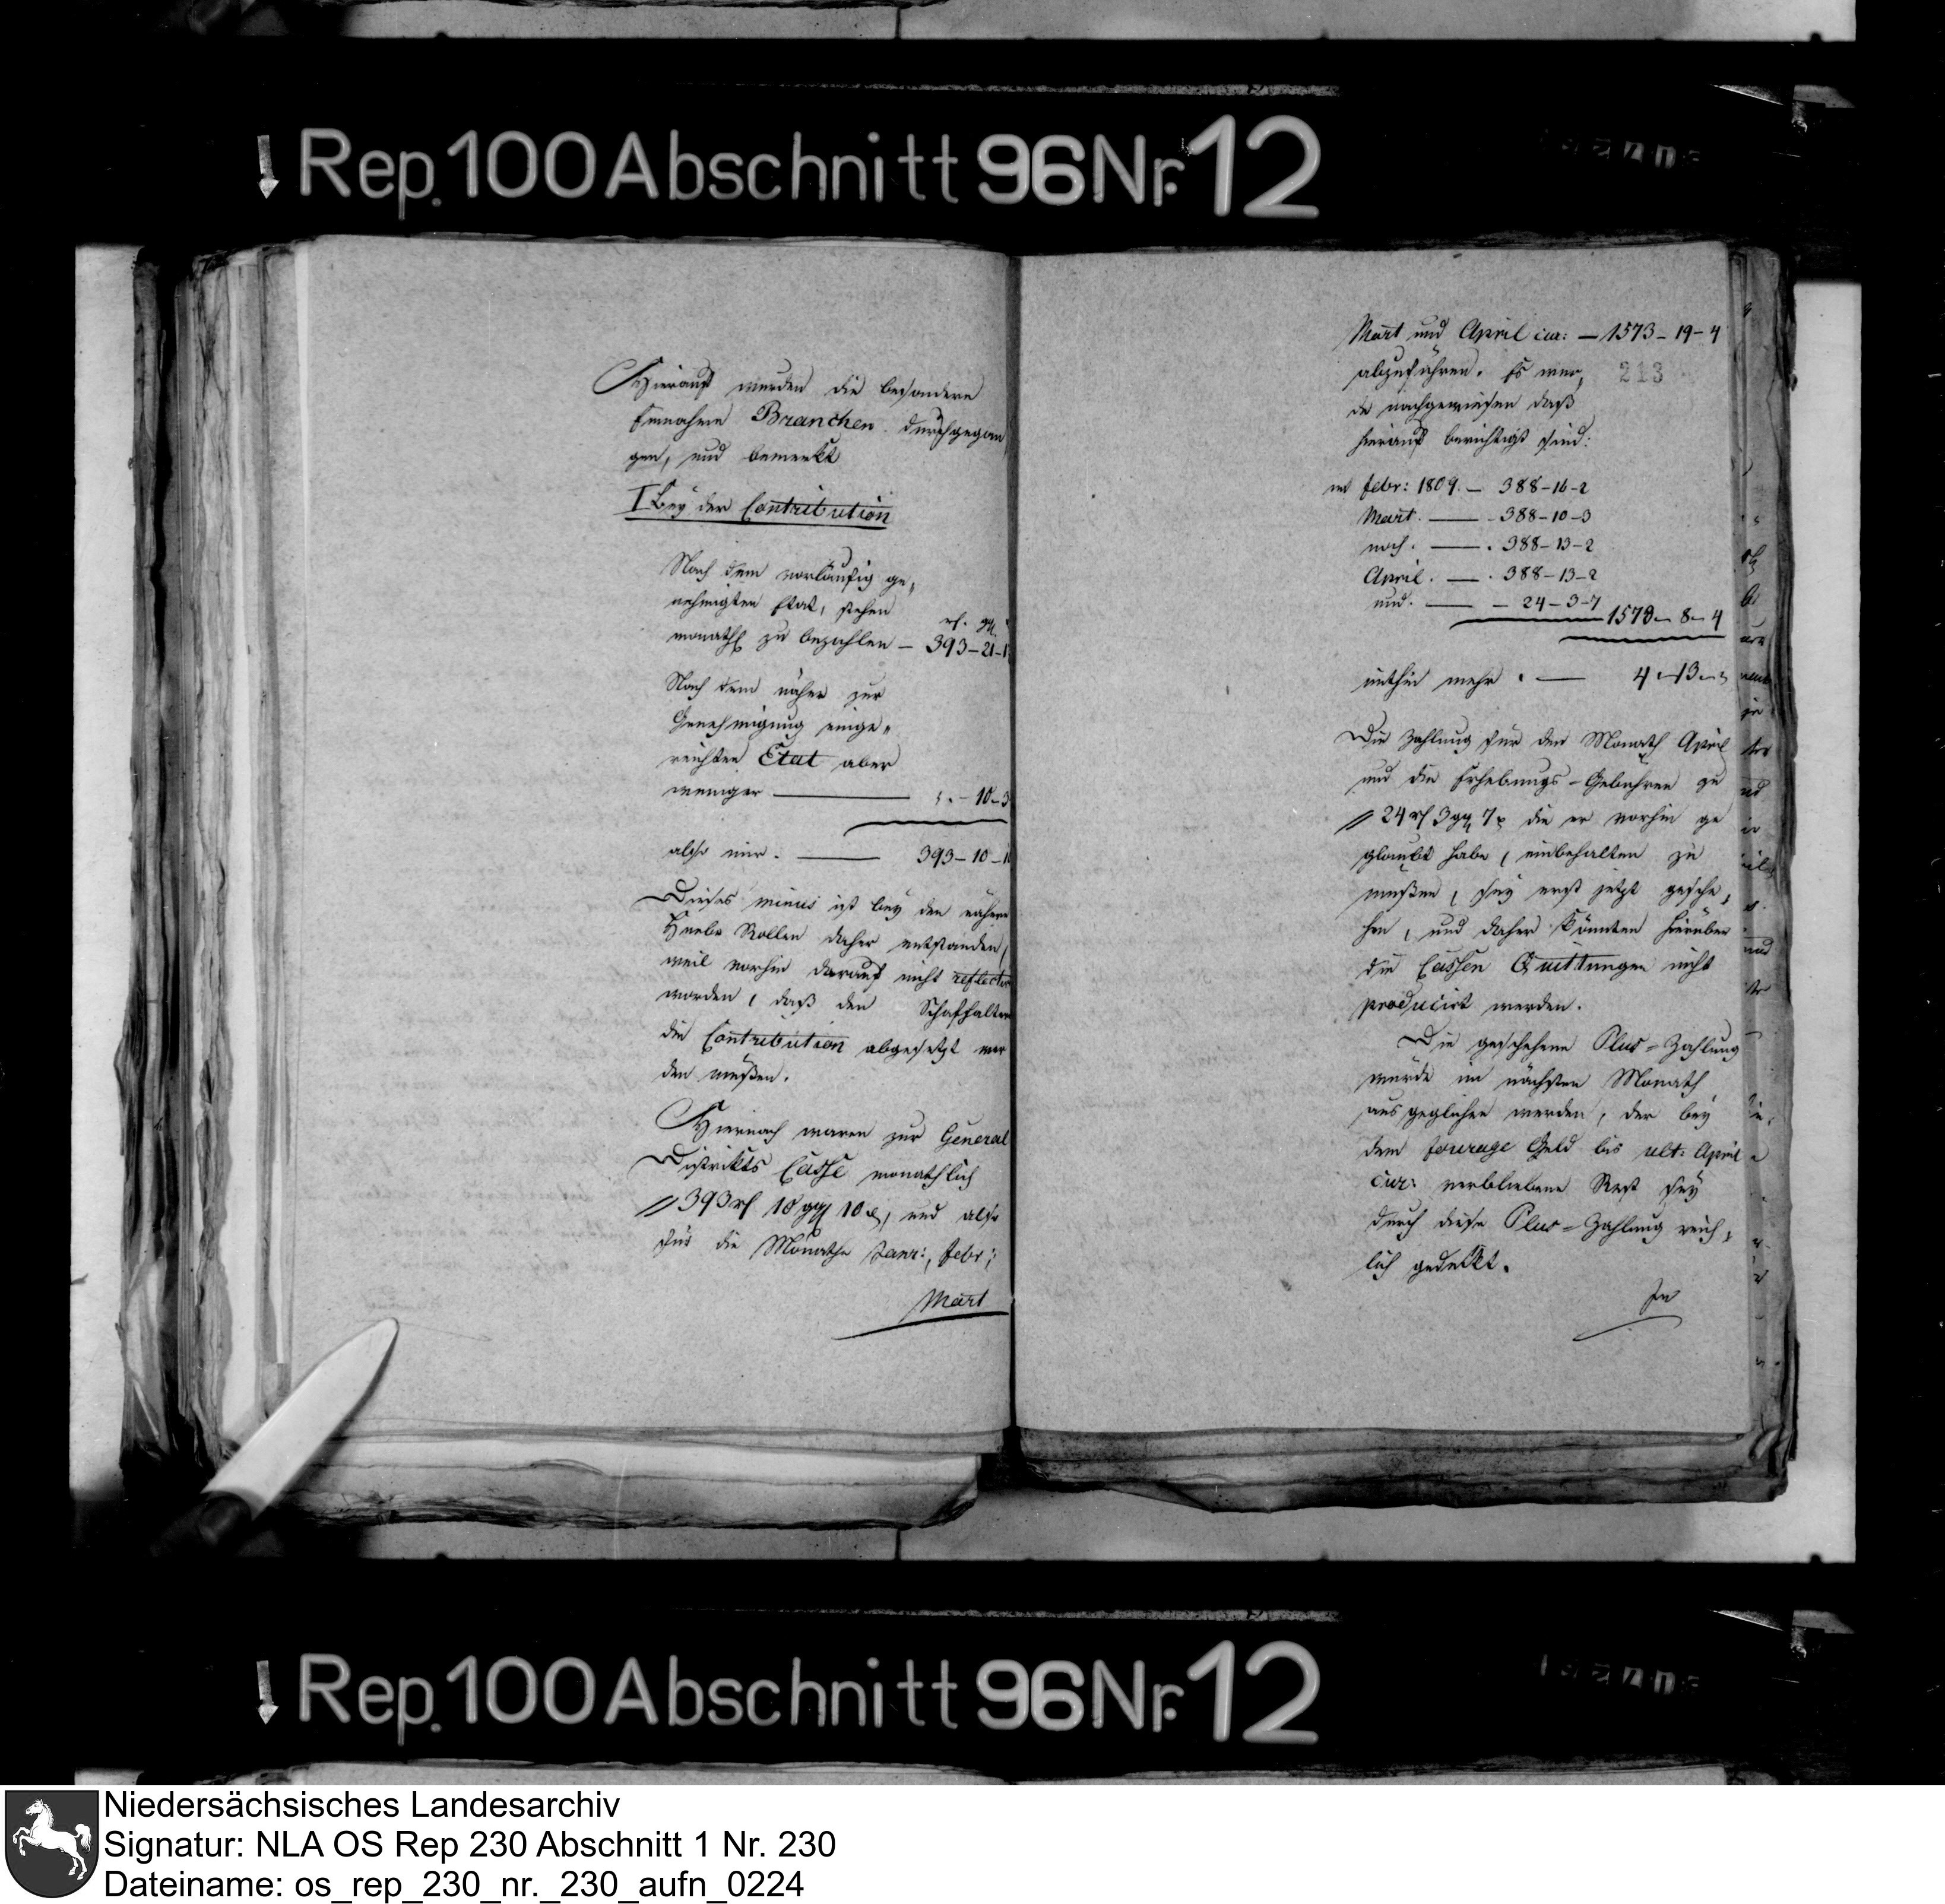 Rep. 100 Abschnitt 96 Nr. 12
Hierauf wurden die besondere
Einnahme Branchen durchgegan
gen, und bemerkt
I Bey der Contribution
Nach dem vorläufig ge„
nehmigten Etat, stehen
rt. gg.
monathl zu bezahlen — 393-21-1
Nach dem näher zur
Genehmigung einge„
reichten Etat aber
weniger — 10-3
also nur. — 393-10-10
Dieses minus ist bey den nähern
Heebe Rollen daher entstanden,
weil vorhin darauf nicht reflectirt
worden, daß den Schaffalten
die Contribution abgesetzt wer
den müßen.
Hiernach waren zur General
Distrikts Casse monathlich
// 393 rt 10 ggl 10 d, und also
für die Monathe Janr:, Febr:,
Mart
Mart und April cur: — 1573-19-4
213
abzuführen. Es wur„
de nachgewiesen daß
hierauf berichtigt sind:
im Febr: 1809. — 388-16-2
Mart. — 388-10-3
noch. — 388-13-2
April. — 388-13-2
und. — 24-3-7
1578-8-4
mithin mehr. — 4-13-
Die Zahlung für den Monath April
und die Erhebungs-Gebühren zu
// 24 rt 3 ggl 7 d die er vorhin ge
glaubt habe, einbehalten zu
müßen, sey erst jetzt gesche„
hen, und daher könnten hierüber
die Cassen Quittungen nicht
producirt werden.
Die geschehene Plus-Zahlung
würde im nächsten Monath
ausgeglichen werden, der bey
dem fourage Geld bis ult: April
cur: verbliebene Rest sey
durch diese Plus-Zahlung reich„
lich gedekkt.
In
Rep. 100 Abschnitt 96 Nr. 12
Niedersächsisches Landesarchiv
Signatur: NLA OS Rep 230 Abschnitt 1 Nr. 230
Dateiname: os_rep_230_nr._230_aufn_0224